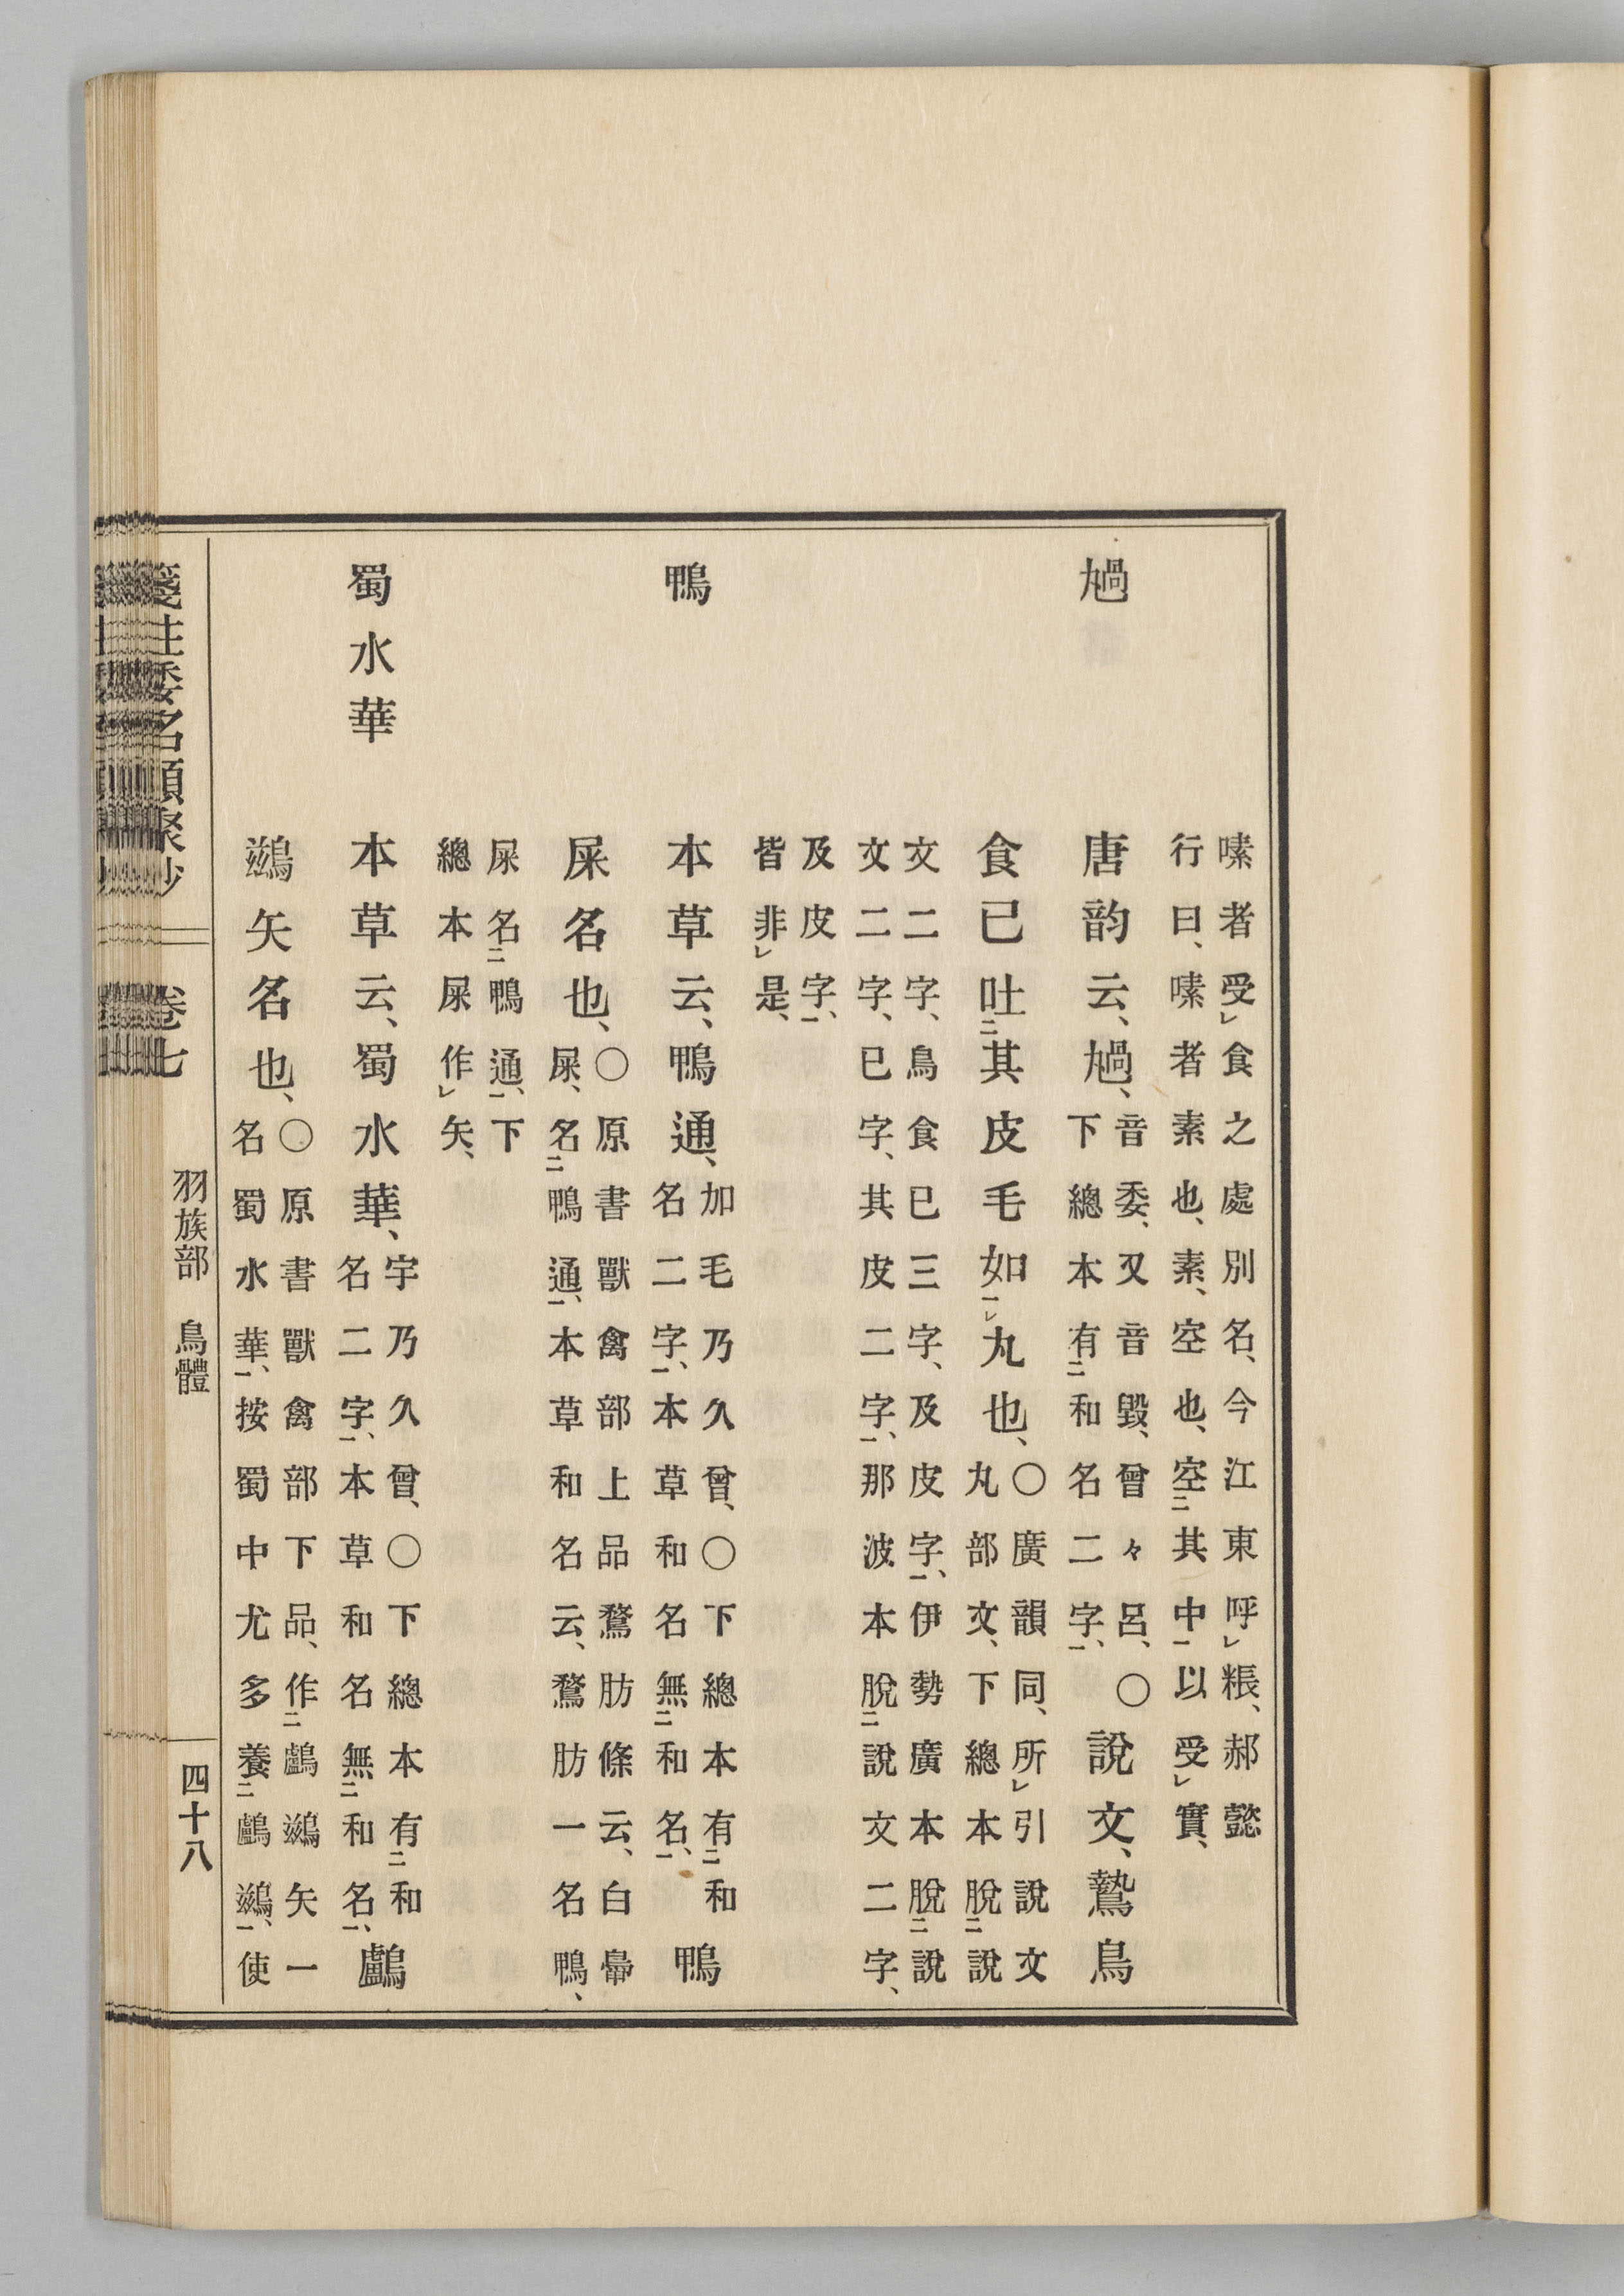 嗉者受㆑食之處別名、今江東呼㆑粻、郝懿
行曰、嗉者素也、素、空也、空㆓其中㆒以受㆑實、
𩨳
唐韵云、𩨳、音委、又音毀、曾々呂、〇
下總本有㆓和名二字㆒、
說文、鷙鳥
食已吐㆓其皮毛如㆒㆑丸也、〇廣韻同、所㆑引說文
丸部文、下總本脫㆓說
文二字、鳥食已三字、及皮字㆒、伊勢廣本脫㆓說
文二字、已字、其皮二字㆒、那波本脫㆓說文二字、
及皮字㆒、
皆非㆑是、
鴨通
本草云、鴨通、加毛乃久曾、〇下總本有㆓和
名二字㆒、本草和名無㆓和名㆒、
鴨
屎名也、〇原書獸禽部上品鶩肪條云、白鼻
屎、名㆓鴨通㆒、本草和名云、鶩肪一名鴨、
屎名㆓鴨通㆒、下
總本屎作㆑矢、
蜀水華
本草云、蜀水華、宇乃久曾、〇下總本有㆓和
名二字㆒、本草和名無㆓和名㆒、
鸕
鷀矢名也、〇原書獸禽部下品、作㆓鸕鷀矢一
名蜀水華㆒、按蜀中尤多養㆓鸕鷀㆒、使
箋注倭名類聚抄 卷七 羽族部 鳥體 四十八